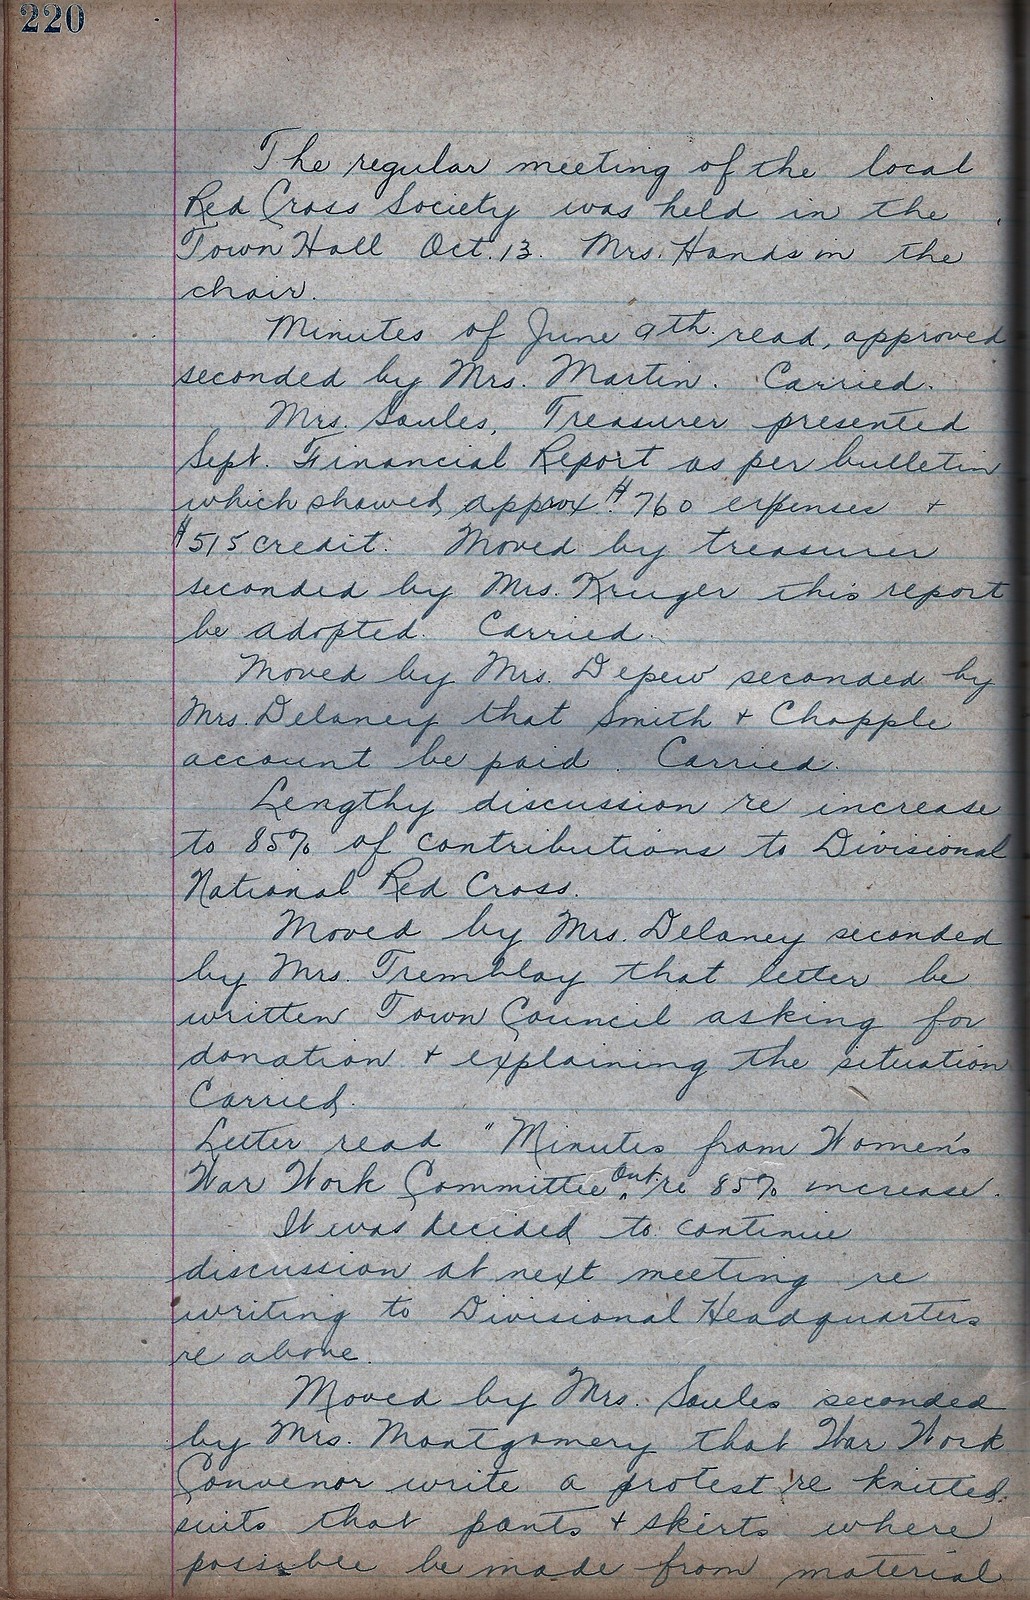 220
The regular meeting of the local
Red Cross Society was held in the
Town Hall Oct. 13. Mrs. Hands in the
chair.
Minutes of June 9th. read, approved
seconded by Mrs. Martin. Carried.
Mrs. Soules, Treasurer presented
Sept. Financial Report as per bulletin
which showed approx. $760 expenses +
$515 credit. Moved by treasurer
seconded by Mrs. Kruger this report
be adopted. Carried.
Moved by Mrs. Depew seconded by
Mrs. Delaney that Smith + Chapple
account be paid. Carried.
Lengthy discussion re increase
to 85% of contributions to Divisional
National Red Cross.
Moved by Mrs. Delaney seconded
by Mrs. Tremblay that letter be
written Town Council asking for
donation + explaining the situation
Carried.
Letter read "Minutes from Women's
War Work Committee Ont. re 85% increase.
It was decided to continue
discussion at next meeting re
writing to Divisional Headquarters
re above.
Moved by Mrs. Soules seconded
by Mrs. Montgomery that War Work
Convenor write a protest re knitted
suits that pants + skirts where
possible be made from material